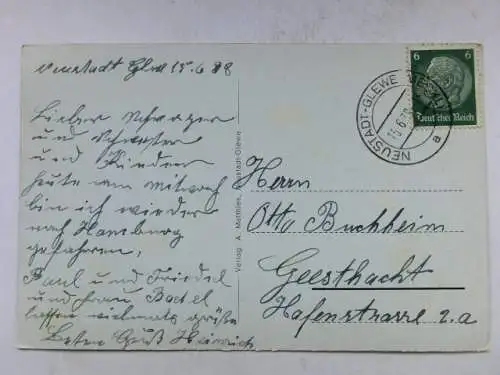 Neustadt Glewe 15.6.38
Lieber Schwager
und Schwester
und Kinder
heute am Mitwoch
bin ich wieder
nach Hamburg
gefahren.
Paul und Friedel
und Frau Badsel
lassen vielmals grüße
Besten Gruß Heinrich
Verlag A. Matthies, Neustadt-Glewe
Herrn
Otto Buchheim
Geesthacht
Hafenstrasse 2.a
NEUSTADT-GLEWE
15.6.38
a
6 6
Deutsches Reich